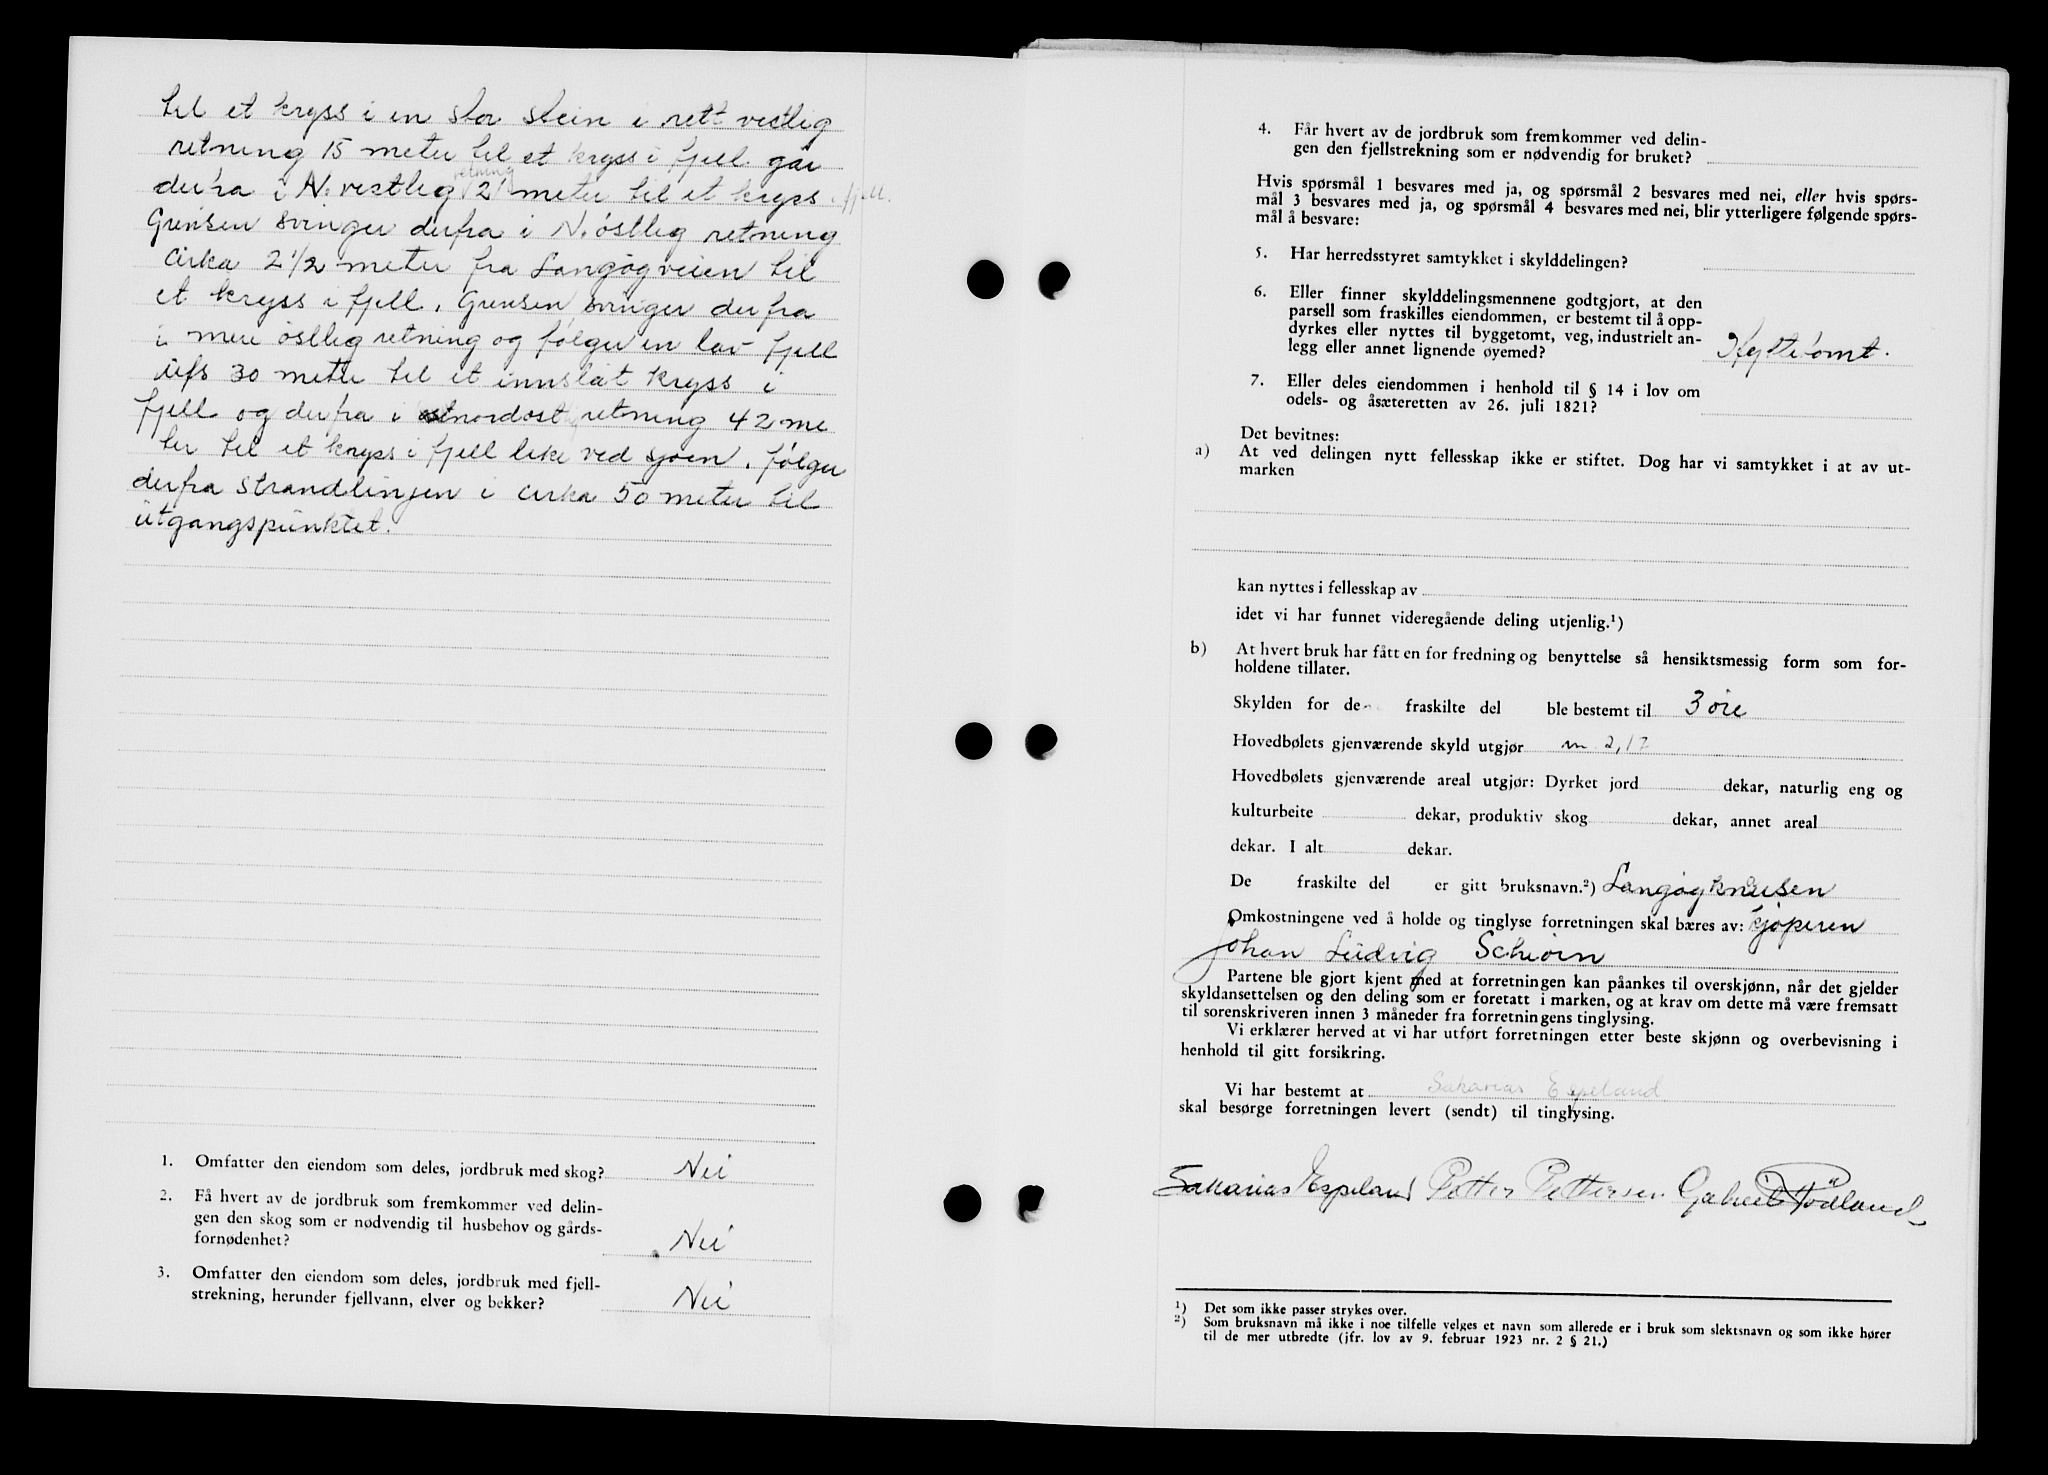 til et kryss i en stor stein i rett vestlig
retning 15 meter til et kryss i fjell går
derfra i N. vestlig retning 21 meter til et kryss i fjell.
Grensen svinger derfra i N. östlig retning
cirka 2 1/2 meter fra Langögveien til
et kryss i fjell. Grensen svinger derfra
i mere östlig retning og fölger en lav fjell
ufs 30 meter til et innslåt kryss i
fjell og derfra i nordost retning 42 me
ter til et kryss i fjell like ved sjöen, fölger
derfra strandlinjen i cirka 50 meter til
utgangspunktet.
1. Omfatter den eiendom som deles, jordbruk med skog? Nei
2. Få hvert av de jordbruk som fremkommer ved delin-
gen den skog som er nødvendig til husbehov og gårds-
fornødenhet? Nei
3. Omfatter den eiendom som deles, jordbruk med fjell-
strekning, herunder fjellvann, elver og bekker? Nei
4. Får hvert av de jordbruk som fremkommer ved delin-
gen den fjellstrekning som er nødvendig for bruket?
Hvis spørsmål 1 besvares med ja, og spørsmål 2 besvares med nei, eller hvis spørs-
mål 3 besvares med ja, og spørsmål 4 besvares med nei, blir ytterligere følgende spørs-
mål å besvare:
5. Har herredsstyret samtykket i skylddelingen?
6. Eller finner skylddelingsmennene godtgjort, at den
parsell som fraskilles eiendommen, er bestemt til å opp-
dyrkes eller nyttes til byggetomt, veg, industrielt an-
legg eller annet lignende øyemed? Hyttetomt.
7. Eller deles eiendommen i henhold til § 14 i lov om
odels- og åsæteretten av 26. juli 1821?
Det bevitnes:
a) At ved delingen nytt fellesskap ikke er stiftet. Dog har vi samtykket i at av ut-
marken
kan nyttes i fellesskap av
idet vi har funnet videregående deling utjenlig.¹)
b) At hvert bruk har fått en for fredning og benyttelse så hensiktsmessig form som for-
holdene tillater.
Skylden for de fraskilte del ble bestemt til 3 öre
Hovedbølets gjenværende skyld utgjør m 2,17
Hovedbølets gjenværende areal utgjør: Dyrket jord dekar, naturlig eng og
kulturbeite dekar, produktiv skog dekar, annet areal
dekar. I alt dekar.
De fraskilte del er gitt bruksnavn.²) Langögknausen
Omkostningene ved å holde og tinglyse forretningen skal bæres av: kjöperen
Johan Ludvig Schiörn
Partene ble gjort kjent med at forretningen kan påankes til overskjønn, når det gjelder
skyldansettelsen og den deling som er foretatt i marken, og at krav om dette må være fremsatt
til sorenskriveren innen 3 måneder fra forretningens tinglysing.
Vi erklærer herved at vi har utført forretningen etter beste skjønn og overbevisning i
henhold til gitt forsikring.
Vi har bestemt at Sakarias Espeland
skal besørge forretningen levert (sendt) til tinglysing.
Sakarias Espeland Petter Pettersen Gabriel Rödland
¹) Det som ikke passer strykes over.
²) Som bruksnavn må ikke i noe tilfelle velges et navn som allerede er i bruk som slektsnavn og som ikke hører
til de mer utbredte (jfr. lov av 9. februar 1923 nr. 2 § 21.)